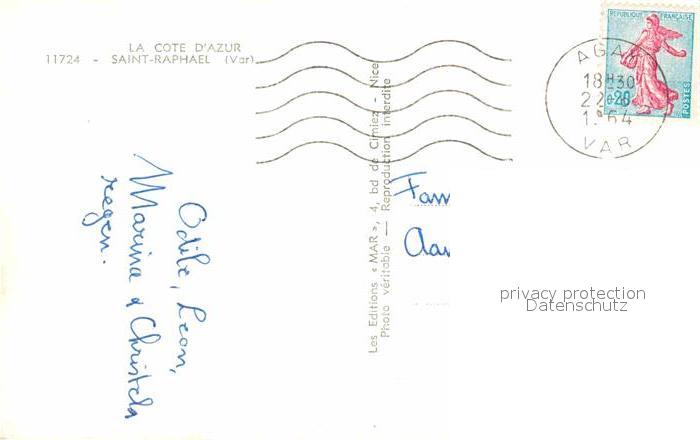 LA COTE D'AZUR
11724 - SAINT-RAPHAEL (Var)
Odile, Léon,
Marina & Christela
Les Editions « MAR », 4, bd de Cimiez - Nice
Photo véritable — Reproduction interdite
Fam
REPUBLIQUE FRANÇAISE
0.20
POSTES
AGAY
18H30
1964
VAR
privacy protection
Datenschutz